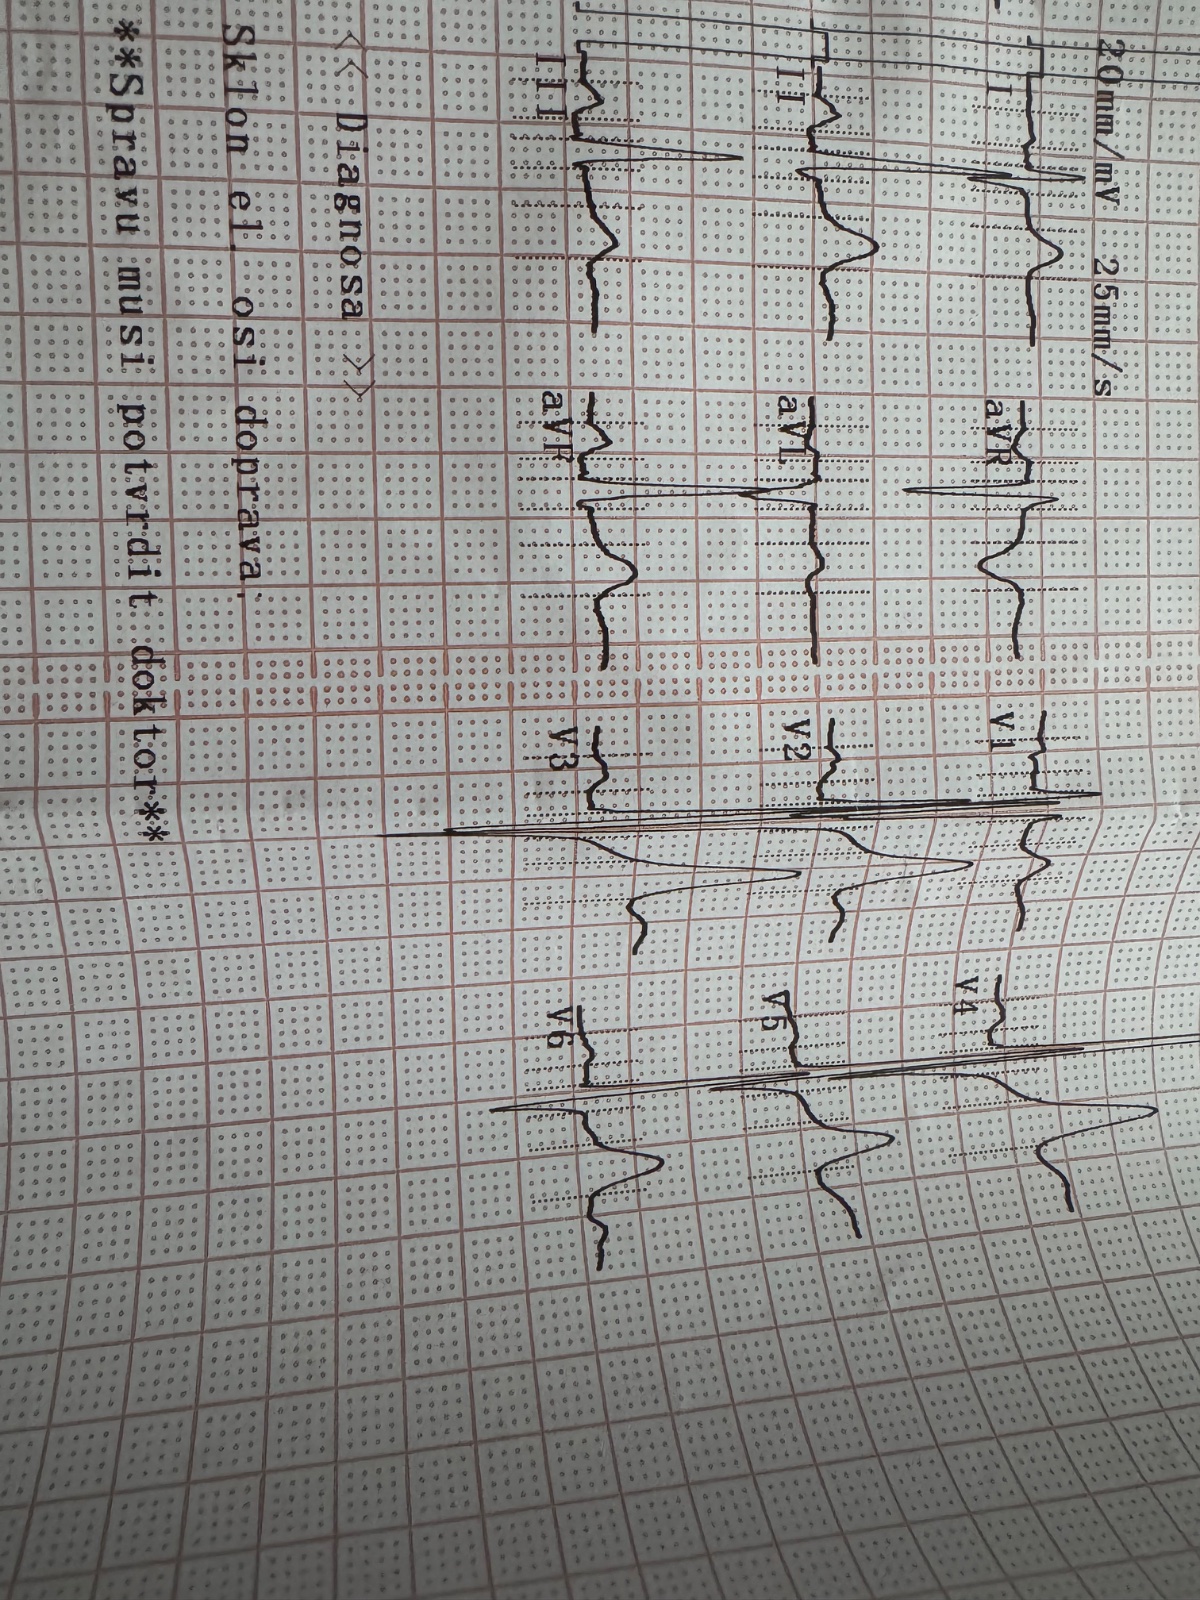 20mm/mV 25mm/s
I aVR V1 V4
II aVL V2 V5
III aVF V3 V6
<< Diagnosa >>
Sklon el. osi doprava.
**Spravu musi potvrdit doktor**